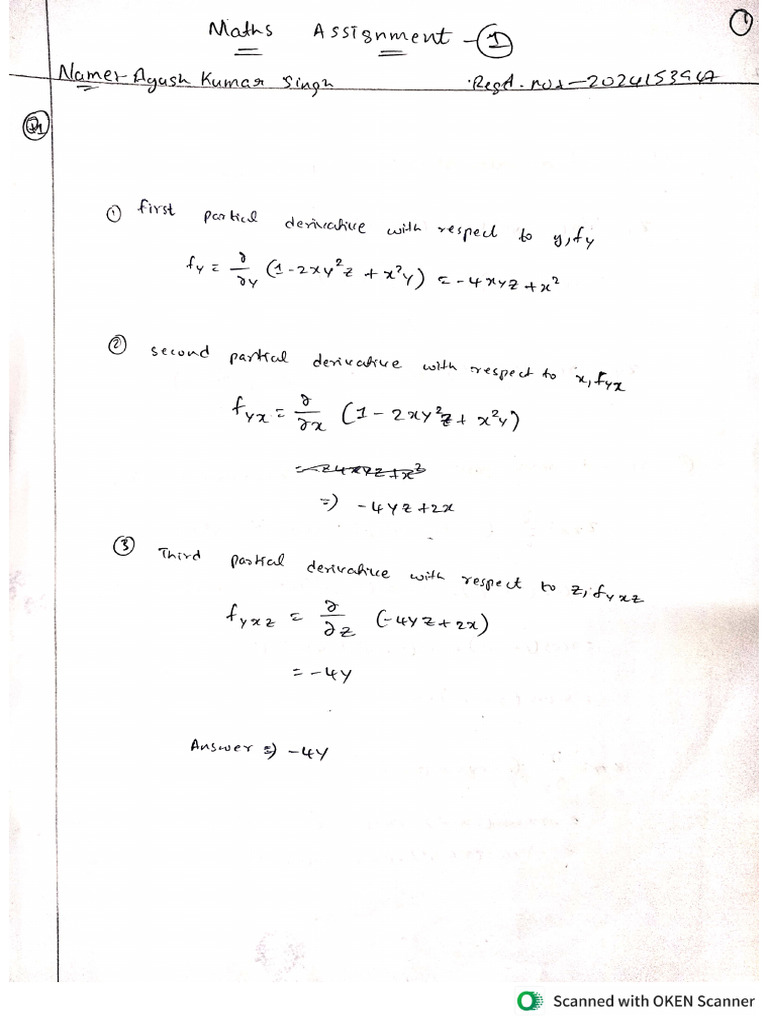 Maths Assignment - ①
①
Name:- Ayush Kumar Singh Regd. no:- 2024153947
Q1
① first partial derivative with respect to y, fy
fy = ∂/∂y (1 - 2xy²z + x²y) = -4xyz + x²
② second partial derivative with respect to x, fyx
fyx = ∂/∂x (1 - 2xy²z + x²y)
=> -4yz + 2x
③ Third partial derivative with respect to z, fyxz
fyxz = ∂/∂z (-4yz + 2x)
= -4y
Answer => -4y
Scanned with OKEN Scanner